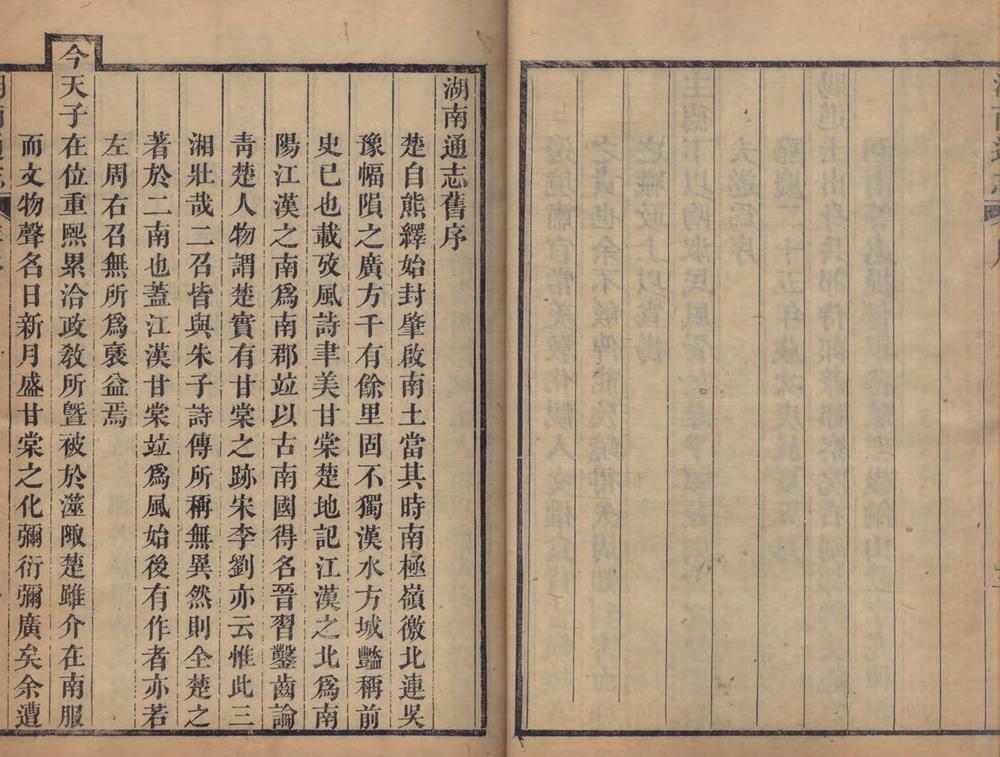 湖南通志舊序
楚自熊繹始封肇啟南土當其時南極嶺徼北連吳
豫幅隕之廣方千有餘里固不獨漢水方城豔稱前
史已也載攷風詩聿美甘棠楚地記江漢之北爲南
陽江漢之南爲南郡竝以古南國得名晉習鑿齒論
靑楚人物謂楚實有甘棠之跡宋李劉亦云惟此三
湘壯哉二召皆與朱子詩傳所稱無異然則全楚之
著於二南也蓋江漢甘棠竝爲風始後有作者亦若
左周右召無所爲襃益焉
今天子在位重熙累洽政敎所曁被於澨陬楚雖介在南服
而文物聲名日新月盛甘棠之化彌衍彌廣矣余遭